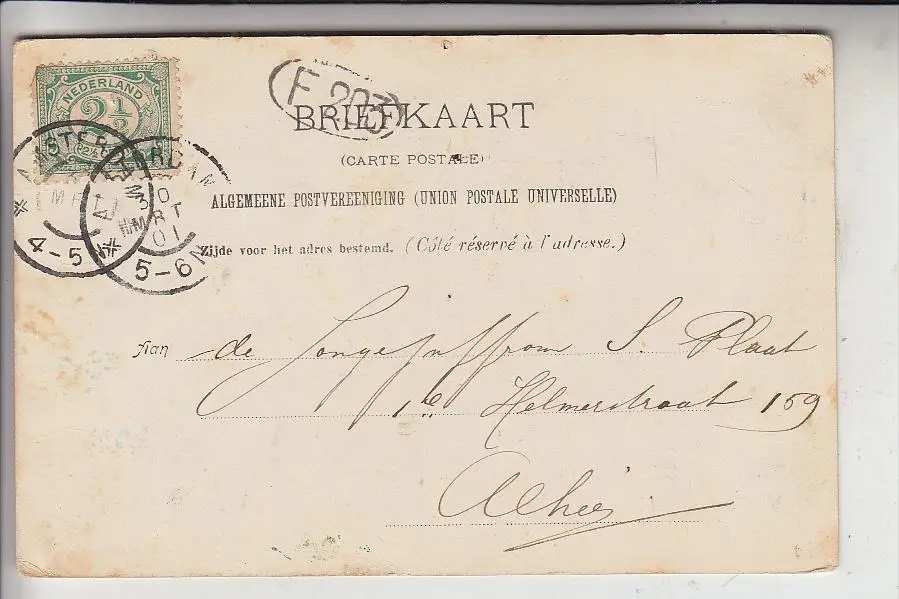 NEDERLAND
2½
F 203
BRIEFKAART
(CARTE POSTALE)
ALGEMEENE POSTVEREENIGING (UNION POSTALE UNIVERSELLE)
Zijde voor het adres bestemd. (Côté réservé à l'adresse.)
AMSTERDAM
4-5
AMSTERDAM
30
MRT
01
5-6N
Aan de Jongejuffrouw S. Plaat
1e Helmerstraat 159
Alhier